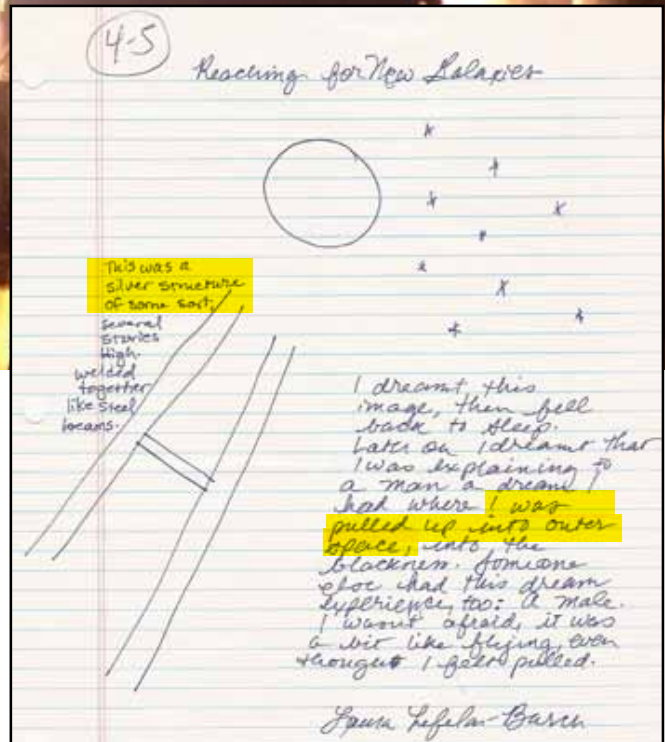 4-5
Reaching for New Galaxies
This was a
silver structure
of some sort,
several
stories
High.
welded
together
like steel
beams.
I dreamt this
image, then fell
back to sleep.
Later on I dreamt that
I was explaining to
a man a dream I
had where I was
pulled up into outer
space, into the
blackness. Someone
else had this dream
experience, too: A male.
I wasn't afraid, it was
a bit like flying, even
thought I felt pulled.